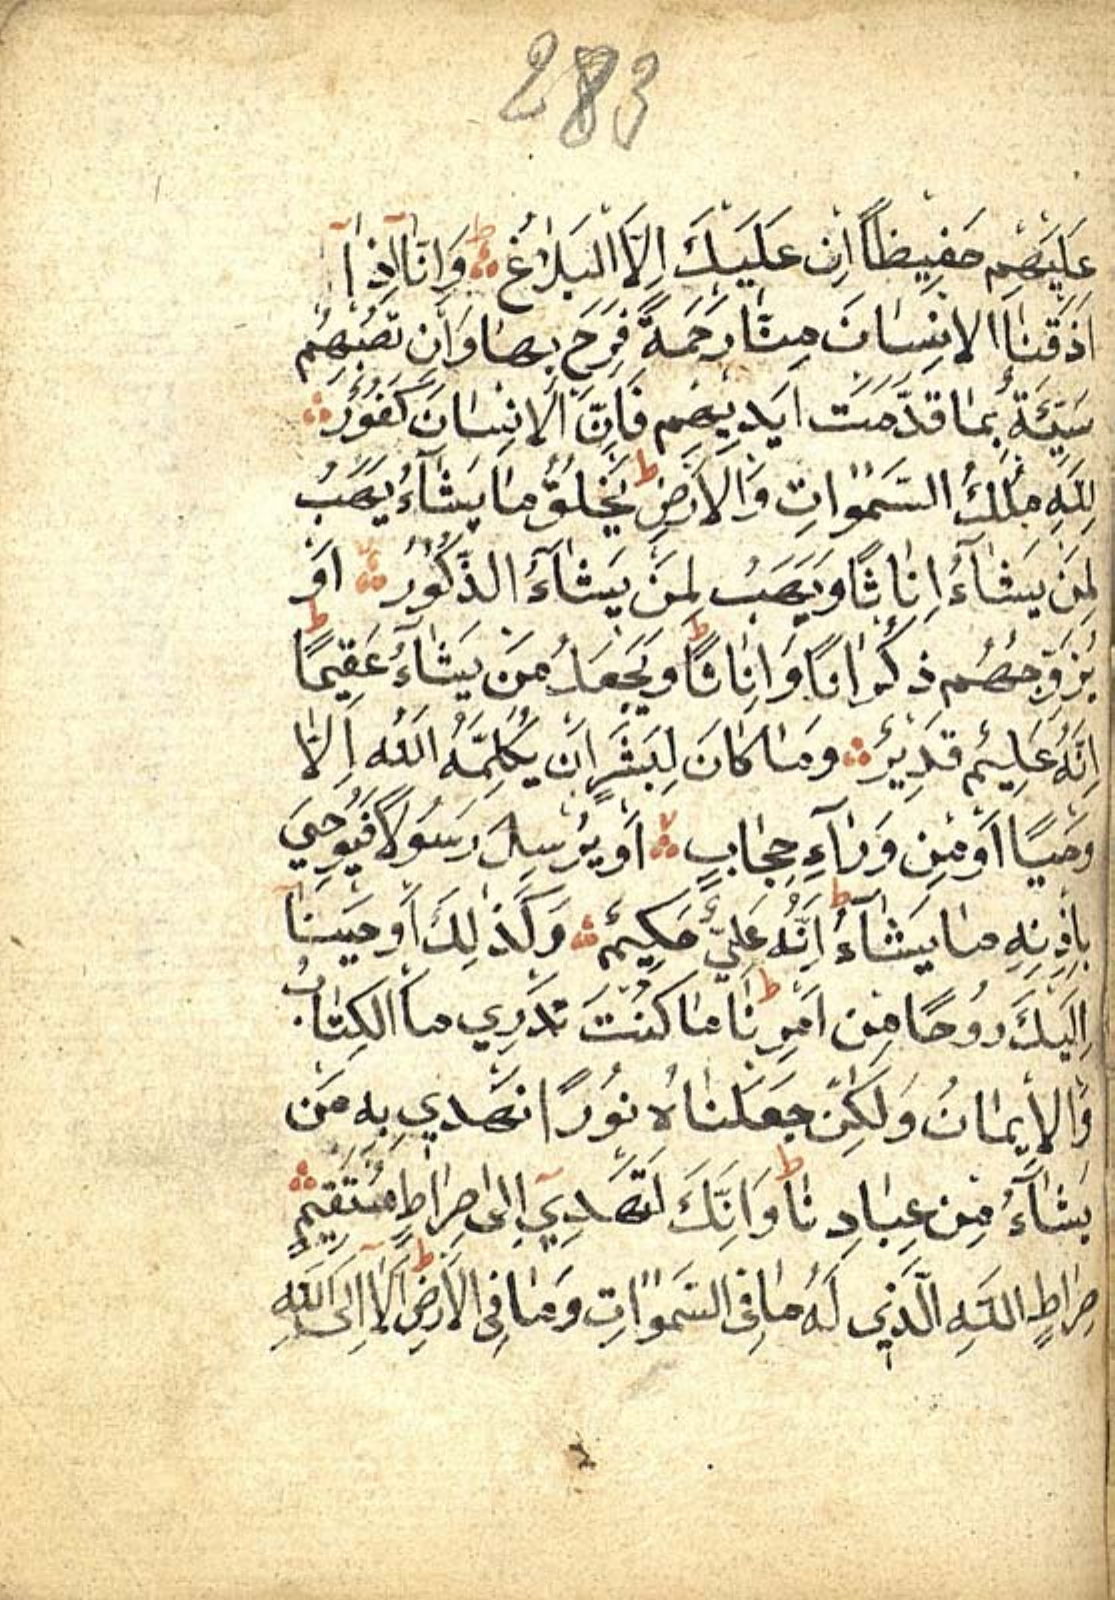 283
عَلَيْهِمْ حَفِيظًا اِنْ عَلَيْكَ اِلَّا الْبَلَاغُ ط وَاِنَّا اِذَا
اَذَقْنَا الْاِنْسَانَ مِنَّا رَحْمَةً فَرِحَ بِهَا وَاِنْ تُصِبْهُمْ
سَيِّئَةٌ بِمَا قَدَّمَتْ اَيْدِيهِمْ فَاِنَّ الْاِنْسَانَ كَفُورٌ
لِلَّهِ مُلْكُ السَّمٰوَاتِ وَالْاَرْضِ ط يَخْلُقُ مَا يَشَآءُ يَهَبُ
لِمَنْ يَشَآءُ اِنَاثًا وَيَهَبُ لِمَنْ يَشَآءُ الذُّكُورَ اَوْ
يُزَوِّجُهُمْ ذُكْرَانًا وَاِنَاثًا ط وَيَجْعَلُ مَنْ يَشَآءُ عَقِيمًا ط
اِنَّهُ عَلِيمٌ قَدِيرٌ وَمَا كَانَ لِبَشَرٍ اَنْ يُكَلِّمَهُ اللّٰهُ اِلَّا
وَحْيًا اَوْ مِنْ وَرَآءِ حِجَابٍ اَوْ يُرْسِلَ رَسُولًا فَيُوحِيَ
بِاِذْنِهِ مَا يَشَآءُ ط اِنَّهُ عَلِيٌّ حَكِيمٌ وَكَذٰلِكَ اَوْحَيْنَآ
اِلَيْكَ رُوحًا مِنْ اَمْرِنَا ط مَا كُنْتَ تَدْرِي مَا الْكِتَابُ
وَالْاِيمَانُ وَلٰكِنْ جَعَلْنَاهُ نُورًا نَهْدِي بِهِ مَنْ
نَشَآءُ مِنْ عِبَادِنَا ط وَاِنَّكَ لَتَهْدِيٓ اِلٰى صِرَاطٍ مُسْتَقِيمٍ
صِرَاطِ اللّٰهِ الَّذِي لَهُ مَا فِي السَّمٰوَاتِ وَمَا فِي الْاَرْضِ ط اَلَآ اِلَى اللّٰهِ